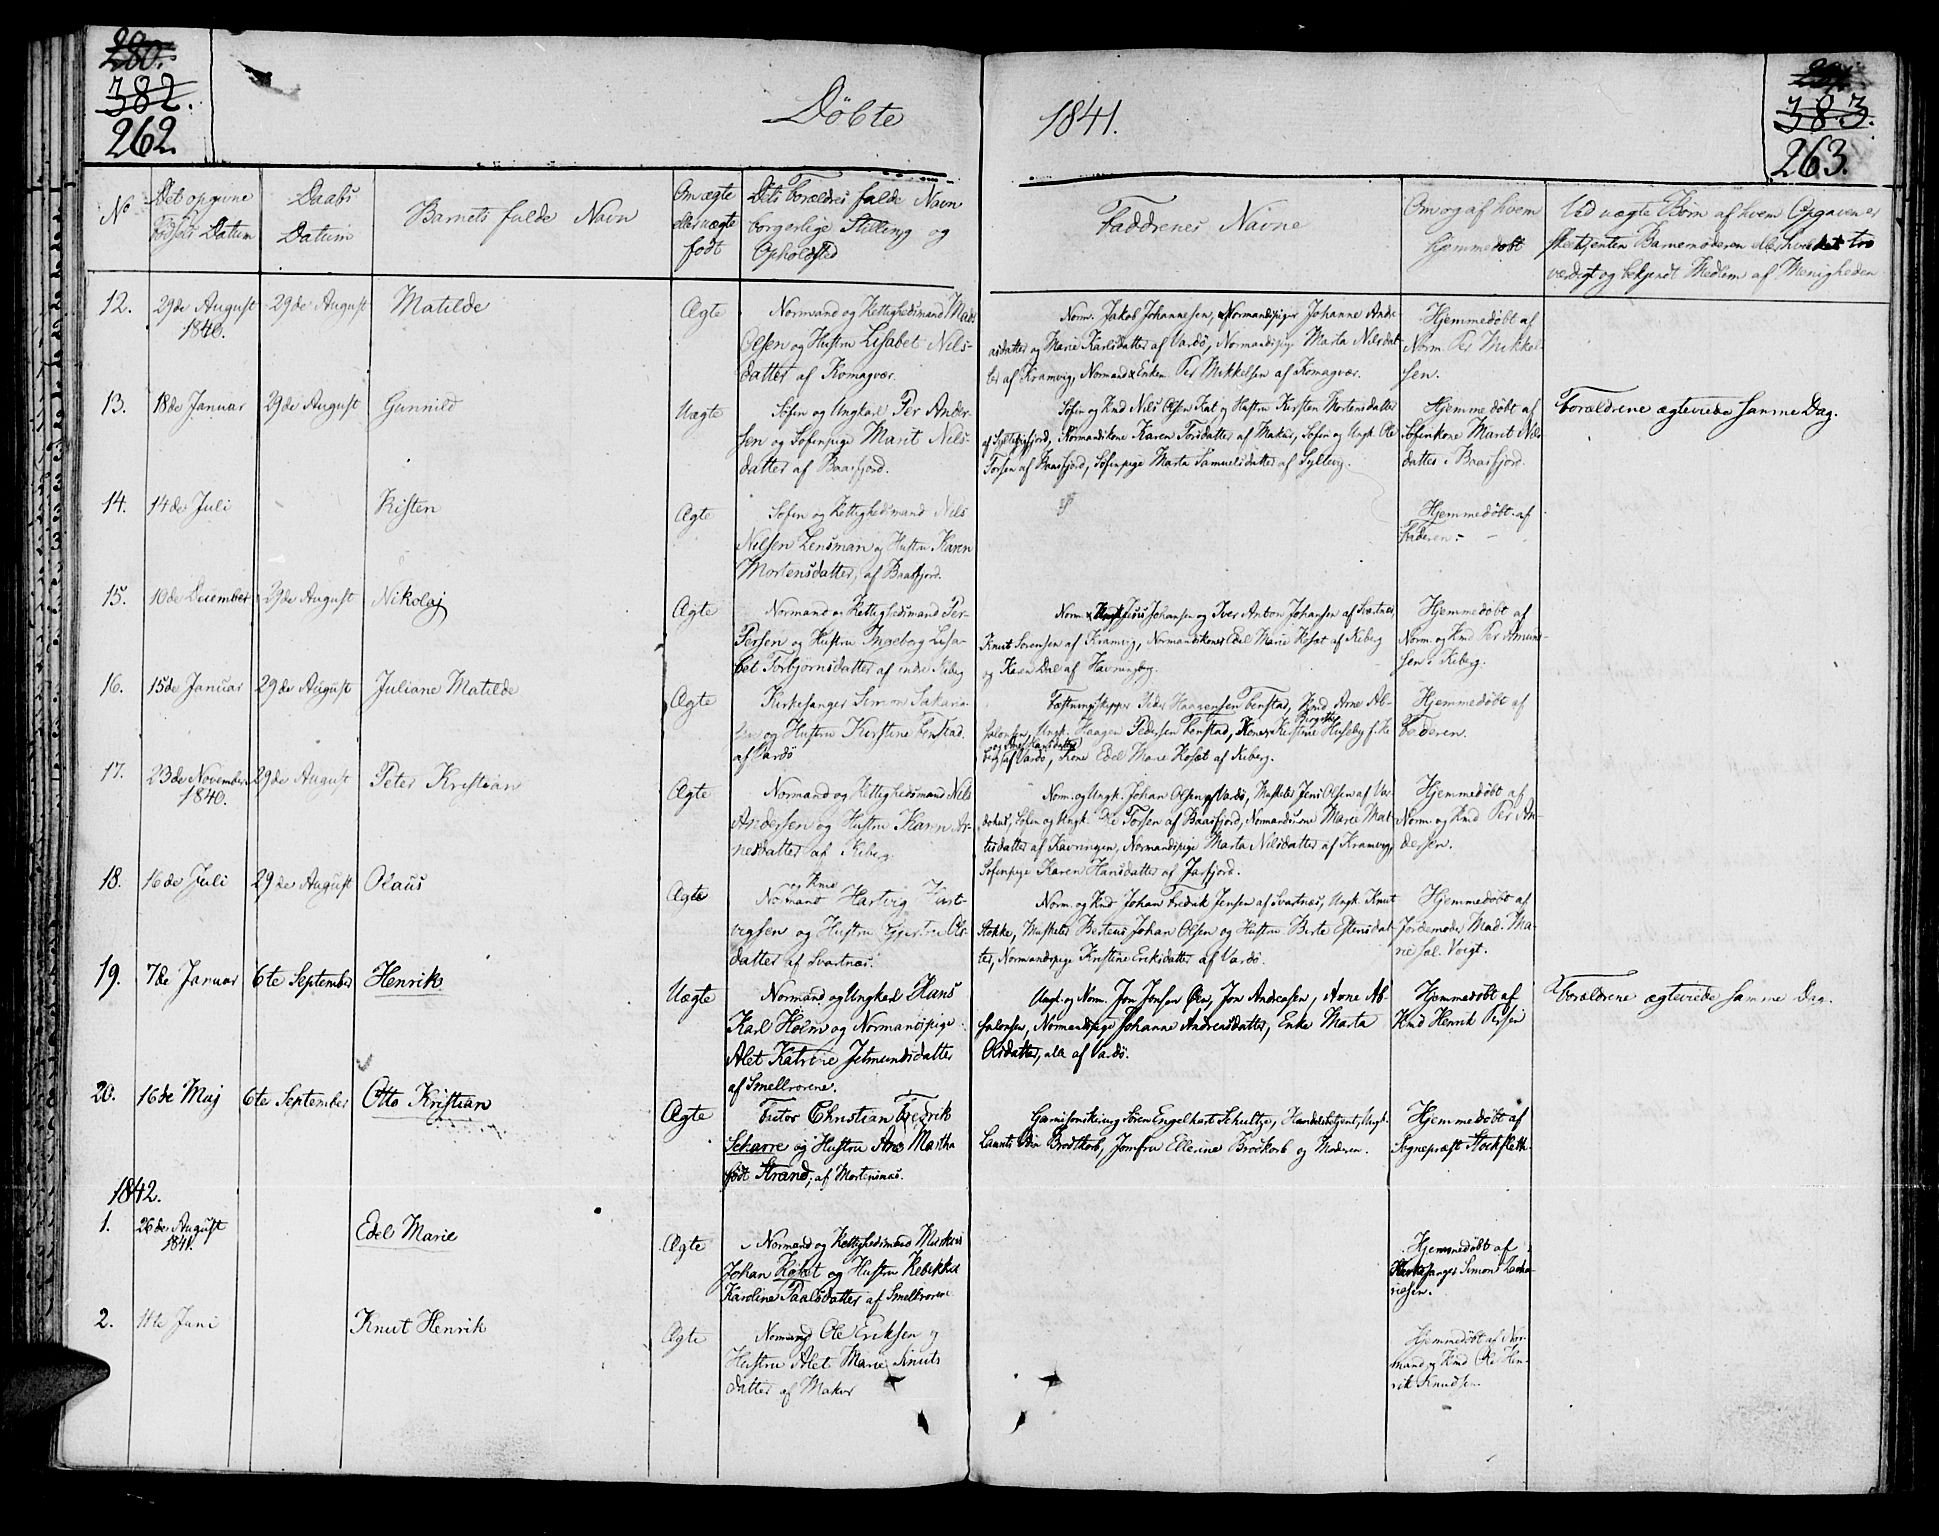 280.
382.
262.
Döbte
1841.
383.
263.
No
Det opgivne
Födsels Datum
Daabs
Datum
Barnets fulde Navn
Om ægte
eller uægte
født
Dets Forældres fulde Navn
borgerlige Stilling og
Opholdsted
Faddrenes Navne
Om og af hvem
hjemmedøbt
Ved uægte Børn af hvem Opgaven er
skeet, enten Barnemoderen eller hvilket tro
værdigt og bekjendt Medlem af Menigheden
12.
29de August
1840.
29de August
Matilde
Ægte
Normand og Rettighedsmand Mads
Olsen og Hustru Lisabet Nils-
datter af Komagvær.
Norm. Jakob Johannesen, Normandspiger Johanne Andre-
asdatter og Marie Karlsdatter af Vardö, Normandspige Marta Nilsdat-
ter af Kramvig, Normand Enkem Per Mikkelsen af Komagvær.
Hjemmedøbt af
Norm. Per Mikkel-
sen.
13.
18de Januar
29de August
Gunnild
Uægte
Søfin og Ungkarl Per Ander-
sen og Søfinpige Marit Nils-
datter af Baasfjord.
Søfin og Kmd Nils Olsen Kat og Hustru Kirsten Mortensdatter
af Syltefjord, Normandskone Karen Torsdatter af Makur, Søfin og Ungk. Ole
Torsen af Baasfjord, Søfinpige Marta Samuelsdatter af Syltevig.
Hjemmedøbt af
Søfinkone Marit Nils-
datter i Baasfjord.
Forældrene ægteviede samme Dag.
14.
14de Juli
Kisten
Ægte
Søfin og Rettighedsmand Nils
Nilsen Lensman og Hustru Karen
Mortensdatter, af Baasfjord.
Hjemmedøbt af
Faderen.
15.
10de December
29de August
Nikolaj
Ægte
Normand og Rettighedsmand Per
Persen og Hustru Ingeborg Lisa-
bet Torbjornsdatter af indre Kiberg
Norm. Jens Johansen og Iver Anton Johansen af Svartnes,
Knut Sørensen af Kramvig, Normandskone Edel Marie Kosat af Kiberg
og Karen Dal af Havningberg.
Hjemmedøbt af
Norm. og Kmd Per Amun-
sen i Kiberg.
16.
15de Januar
29de August
Juliane Matilde
Ægte
Kirkesanger Simon Sakaria-
sen og Hustru Kirstine Fenstad
af Vardö
Fæstningsskipper Peder Haagensen Fenstad, Kmd Arne Ab-
salonsen, Ungk. Haagen Pedersen Fenstad, Kone Kirstine Huseby f. Ki
berg af Vardö, Kone Edel Marie Kosæt af Kiberg.
Hjemmedøbt af
Faderen.
17.
23de November
1840.
29de August
Peter Kristian
Ægte
Normand og Rettighedsmand Nils
Andersen og Hustru Karen Ar-
nesdatter af Kiberg.
Norm. og Ungk. Johan Olsen af Vardö, Musketer Jens Olsen af Var-
döehus, Søfin og Ungk. Ole Torsen af Baasfjord, Normandskone Marie Mat-
tisdatter af Kavringen, Normandspige Marta Nilsdatter af Kramvig,
Søfinpige Karen Hansdatter af Jarfjord.
Hjemmedøbt af
Norm. og Kmd Per An-
dersen.
18.
16de Juli
29de August
Olaus
Ægte
og Kmd
Normand Hartvig Hart-
vigsen og Hustru Gjertru Ols-
datter af Svartnæs.
Norm. og Kmd Johan Fredrik Jensen af Svartnæs, Ungk. Knut
Stokke, Musketer Berteus Johan Olsen og Hustru Berte Estensdat-
ter, Normandspige Kristine Eriksdatter af Vardö.
Hjemmedøbt af
Jordemoder Mad. Ma-
rie sal. Voigt.
19.
7de Januar
6te September
Henrik
Uægte
Normand og Ungkarl Hans
Karl Holm og Normandspige
Alet Katrine Jetmundsdatter
af Smellrorene.
Ungk. og Norm. Jon Jonsen Øien, Jon Andreasen, Arne Ab-
salonsen, Normandspige Johanne Andreasdatter, Enke Marta
Olsdatter, alle af Vardö.
Hjemmedøbt af
Kmd Henrik Persen
Forældrene ægteviede samme Dag.
20.
16de Maj
6te September
Otto Kristian
Ægte
Factor Christian Fredrik
Scharre og Hustru Ane Martha
født Strand, af Mortensnæs.
Garnisonskirurg Søren Engelhart Schultze, Handelsbetjent, Ungk.
Laurits Odin Brodtkorb, Jomfru Ellerine Brodkorb og Moderen.
Hjemmedøbt af
Sognepræst Stockfleth.
1842.
1.
26de August
1841.
Edel Marie
Ægte
Normand og Rettighedsmand Markus
Johan Kosæt og Hustru Rebekka
Karoline Paalsdatter af Smellrorene
Hjemmedøbt af
Kirkesanger Simon Zacha-
riesen.
2.
11te Juni
Knut Henrik
Ægte
Normand Ole Eriksen og
Hustru Alet Marie Knuts
datter af Makur
Hjemmedøbt af Nor-
mand og Kmd Ole Hen-
rik Knudsen.